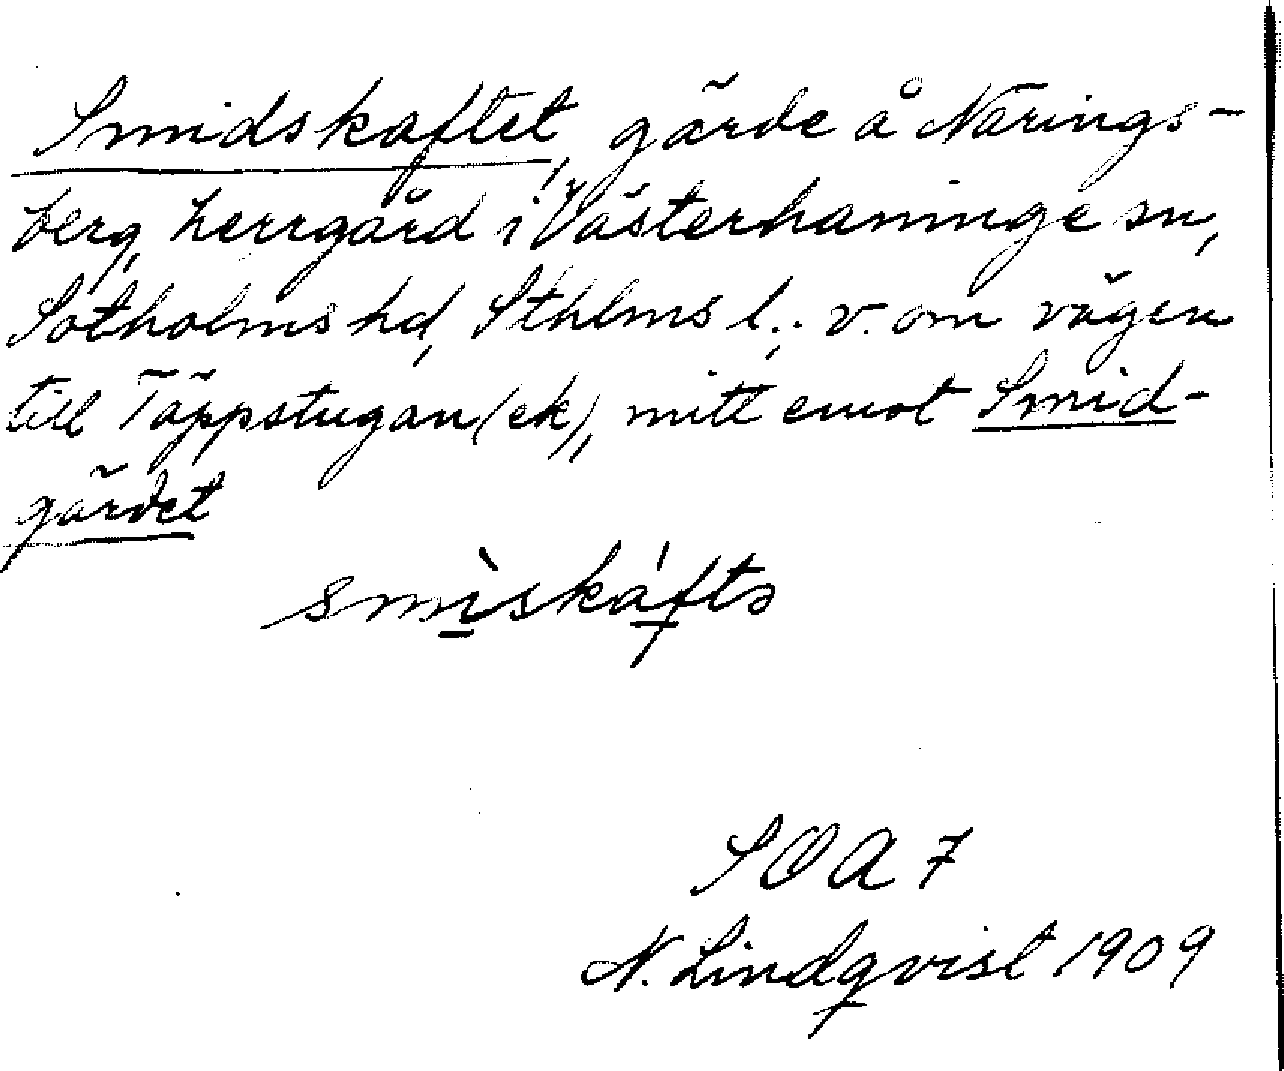 Smidskaftet, gärde å Närings-
berg, herrgård i Västerhaninge sn,
Sotholms hd, Sthlms l.; v. om vägen
till Täppstugan (ek), mitt emot Smid-
gärdet
smìskáftə
SOA 7
N. Lindqvist 1909